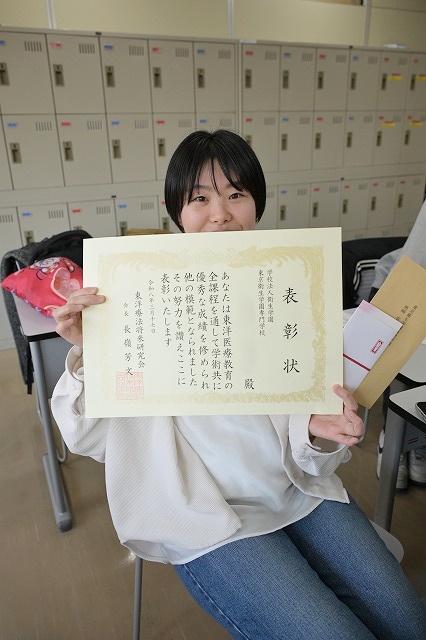 表彰状
学校法人衛生学園
東京衛生学園専門学校
殿
あなたは東洋医療教育の
全課程を通して学術共に
優秀な成績を修められ
他の模範となられました
その努力を讃えここに
表彰いたします
令和八年三月十七日
東洋療法将来研究会
会長 長嶺芳文